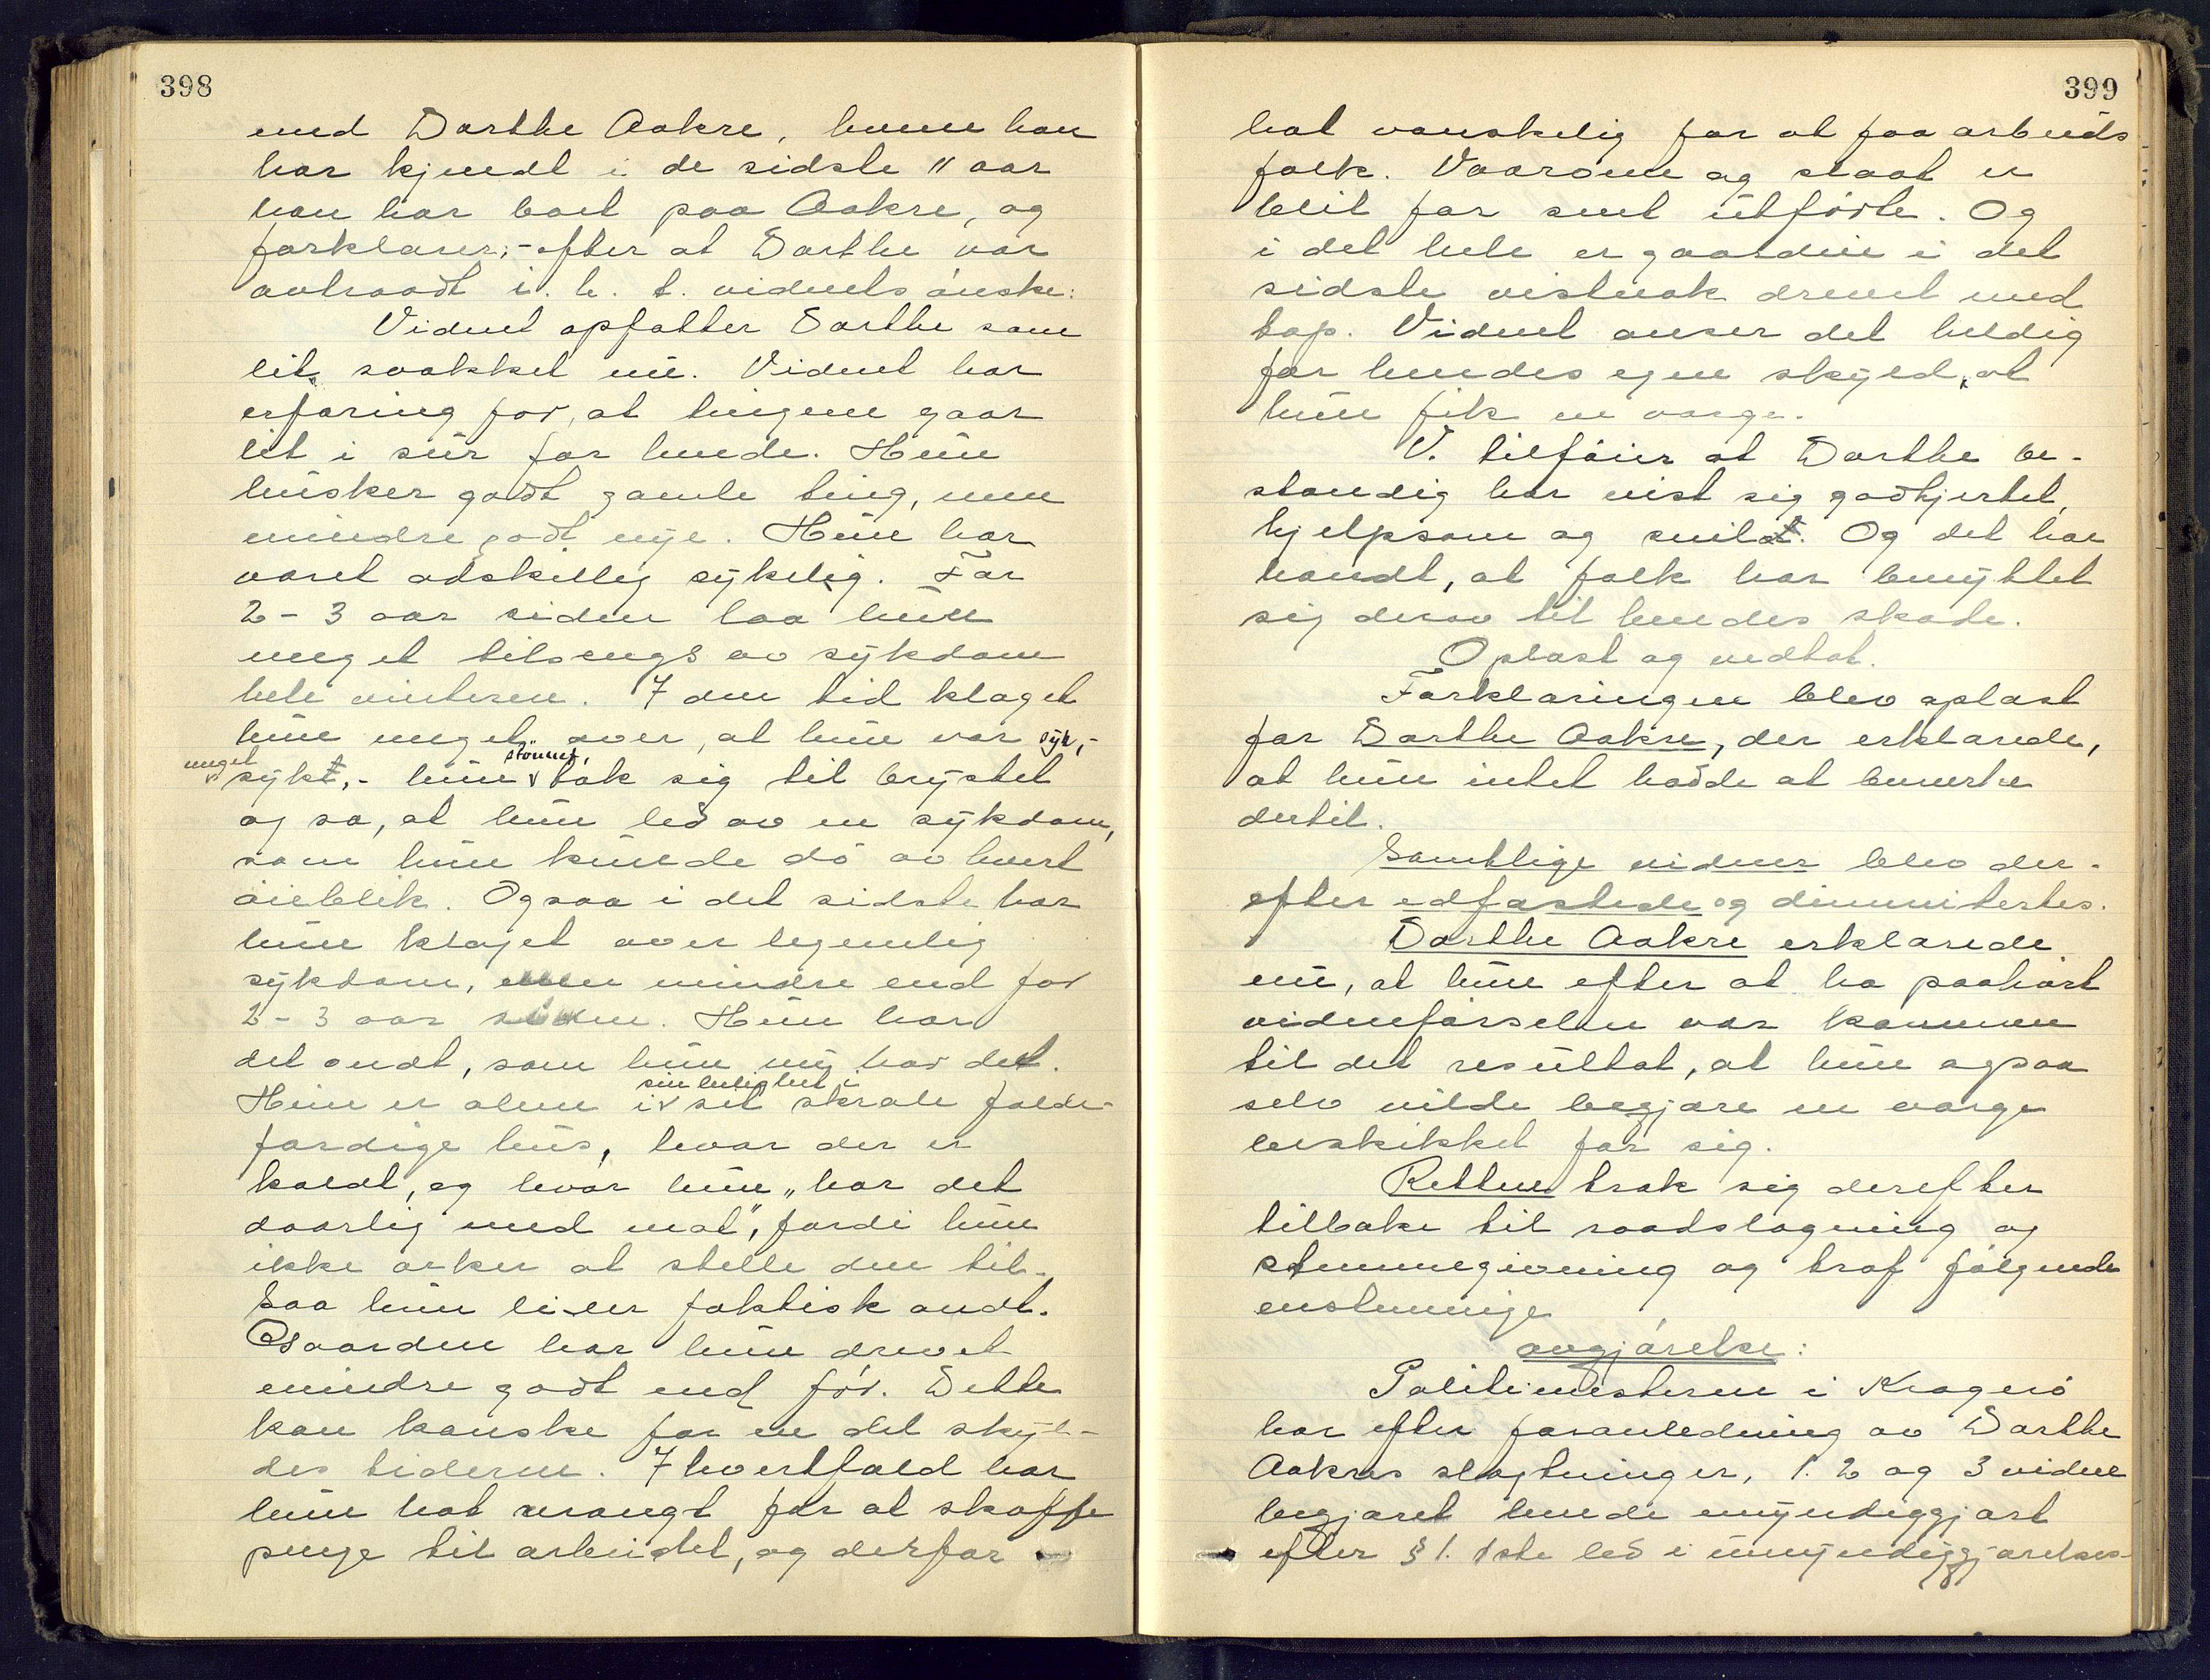 398
med Dorthe Aakre, hvem han
har kjendt i de sidste 11 aar
han har boet paa Aakre, og
forklarer; - efter at Dorthe var
avtraadt i. h. t. vidnets ønske:
Vidnet opfatter Dorthe som
lit svækket nu. Vidnet har
erfaring for, at tingene gaar
lit i sur for hende. Hun
husker godt gamle ting, men
mindre godt nye. Hun har
været adskillig sykelig. For
2-3 aar siden laa hun
meget tilsengs av sykdom
hele vinteren. I den tid klaget
hun meget over, at hun var syk, -
meget sykt, - hun stønnet, tok sig til brystet
og sa, at hun led av en sykdom,
som hun kunde dø av hvert
øieblik. Ogsaa i det sidste har
hun klaget over legemlig
sykdom, men mindre end for
2-3 aar siden. Hun har
det ondt, som hun nu har det.
Hun er alene i sin leilighet i set skrale falde-
færdige hus, hvor der er
koldt, og hvor hun "har det
daarlig med mat", fordi hun
ikke orker at stelle den til.
Saa hun lider faktisk ondt.
Gaarden har hun drevet
mindre godt end før. Dette
kan kanske for en del skyl-
des tiderne. I hvertfald har
hun hat vrangt for at skaffe
penge til arbeidet, og derfor
399
hat vanskelig for at faa arbeids
folk. Vaaronn og slaat er
blit for sent utførte. Og
i det hele er gaarden i det
sidste vistnok drevet med
tap. Vidnet anser det heldig
for hendes egen skyld, at
hun fik en værge.
V. tilføier at Dorthe be-
standig har vist sig godhjertet,
hjelpsom og snild. Og det har
hændt, at folk har benyttet
sig derav til hendes skade.
Oplæst og vedtat.
Forklaringen blev oplæst
for Dorthe Aakre, der erklærede,
at hun intet hadde at bemerke
dertil.
Samtlige vidner blev der-
efter edfæstede og dimmitertes.
Dorthe Aakre erklærede
nu, at hun efter at ha paahørt
vidneførselen var kommen
til det resultat, at hun ogsaa
selv vilde begjære en værge
beskikket for sig.
Retten trak sig derefter
tilbake til raadslagning og
stemmegivning og traf følgende
enstemmige
avgjørelse:
Politimesteren i Kragerø
har efter foranledning av Dorthe
Aakres slegtninger, 1. 2 og 3 vidne
begjæret hende umyndiggjort
efter § 1. 1ste led i umyndiggjørelses-